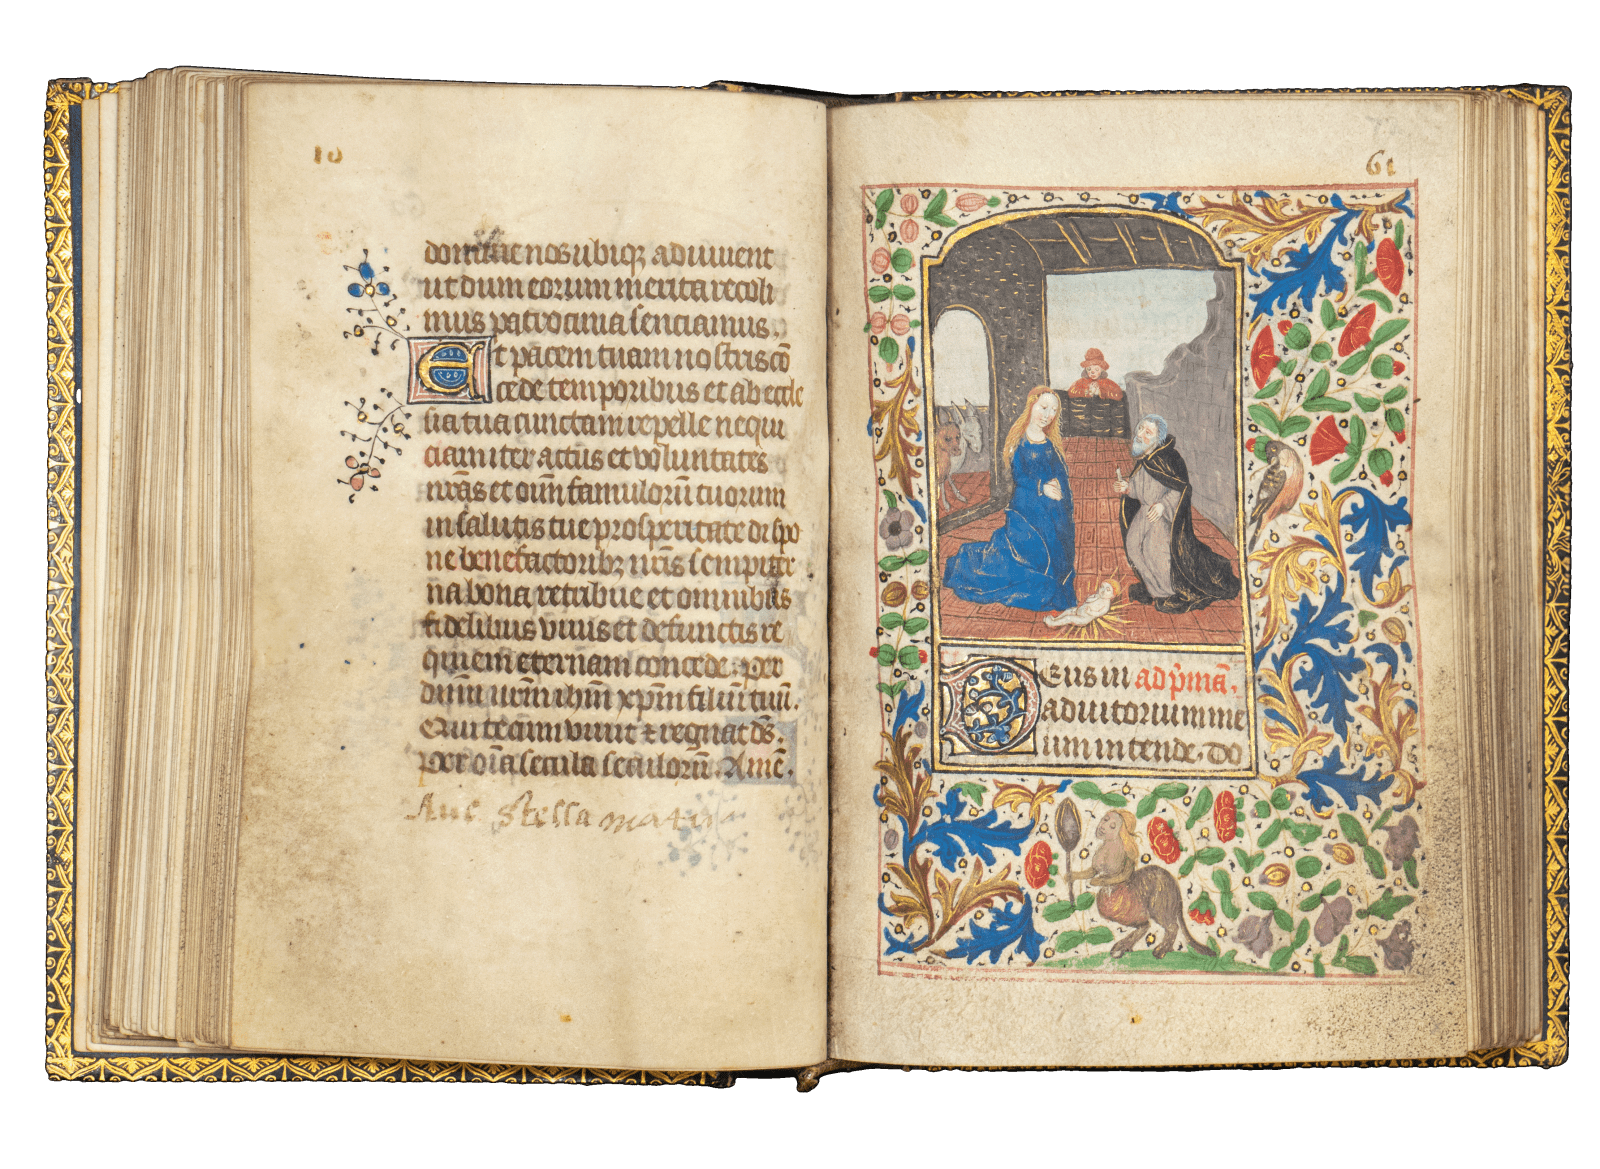 10
domine nos ubiq₃ adiuuent
ut dum eorum merita recoli
mus patrocinia senciamus.
Et pacem tuam nostris cō
cede temporibus et ab eccle
sia tua cunctam repelle nequi
ciam iter actus et voluntates
nr̄as et oīm famulorū tuorum
in salutis tue prosperitate dispo
ne benefactorib₃ nr̄is sempiter
na bona retribue et omnibus
fidelibus viuis et defunctis re
quiem eternam concede. Per
dn̄m nr̄m ihm̄ xp̄m filiū tuū.
Qui tecum viuit ⁊ regnat ds̄.
Per oīa secula seculorū. Amē.
Aue stella
61
DEus in ad pͥmā.
adiutorium me
um intende. Do